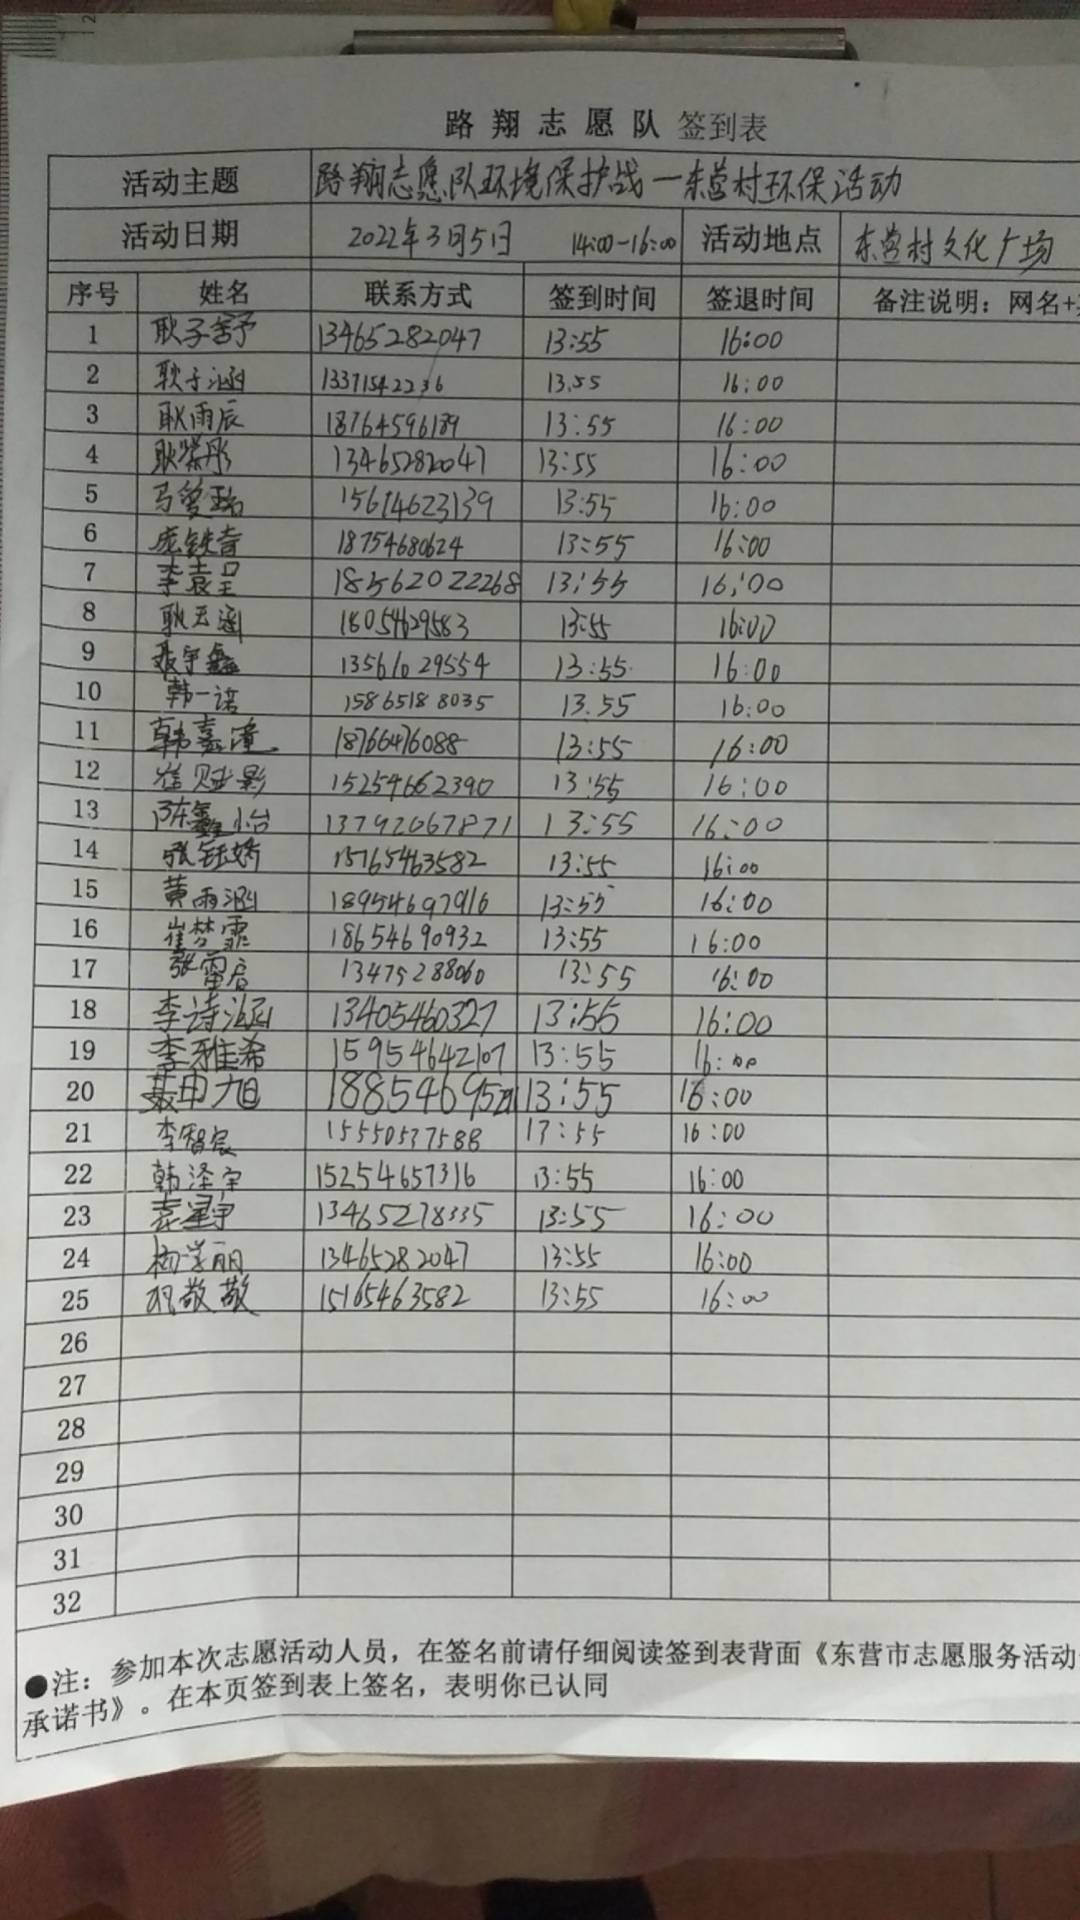 路翔志愿队 签到表
活动主题 路翔志愿队环境保护战一东营村环保活动
活动日期 2022年3月5日 14:00-16:00 活动地点 东营村文化广场
序号 姓名 联系方式 签到时间 签退时间 备注说明：网名+
1 耿子舒 13465282047 13:55 16:00
2 耿子涵 13371542236 13.55 16:00
3 耿雨辰 18764596189 13:55 16:00
4 耿紫彤 13465282047 13:55 16:00
5 马曼瑞 15614623139 13:55 16:00
6 庞铁奇 18754680624 13:55 16:00
7 李袁呈 18562022268 13:55 16:00
8 耿天涵 18054629583 13:55 16:00
9 聂宇鑫 13561029554 13:55 16:00
10 韩一诺 15865188035 13.55 16:00
11 韩嘉潼 18766476088 13:55 16:00
12 崔赋影 15254662390 13:55 16:00
13 陈鑫怡 13792067871 13:55 16:00
14 张钰娇 15165463582 13:55 16:00
15 黄雨涵 18954697916 13:55 16:00
16 崔梦霏 18654690932 13:55 16:00
17 张雷启 13475288060 13:55 16:00
18 李诗涵 13405460327 13:55 16:00
19 李雅希 15954642107 13:55 16:00
20 聂申旭 188546952 13:55 16:00
21 李智宸 15550537588 13:55 16:00
22 韩泽宇 15254657316 13:55 16:00
23 袁星宇 13465278335 13:55 16:00
24 杨学丽 13465282047 13:55 16:00
25 敬敬 15165463582 13:55 16:00
26
27
28
29
30
31
32
●注：参加本次志愿活动人员，在签名前请仔细阅读签到表背面《东营市志愿服务活动
承诺书》。在本页签到表上签名，表明你已认同